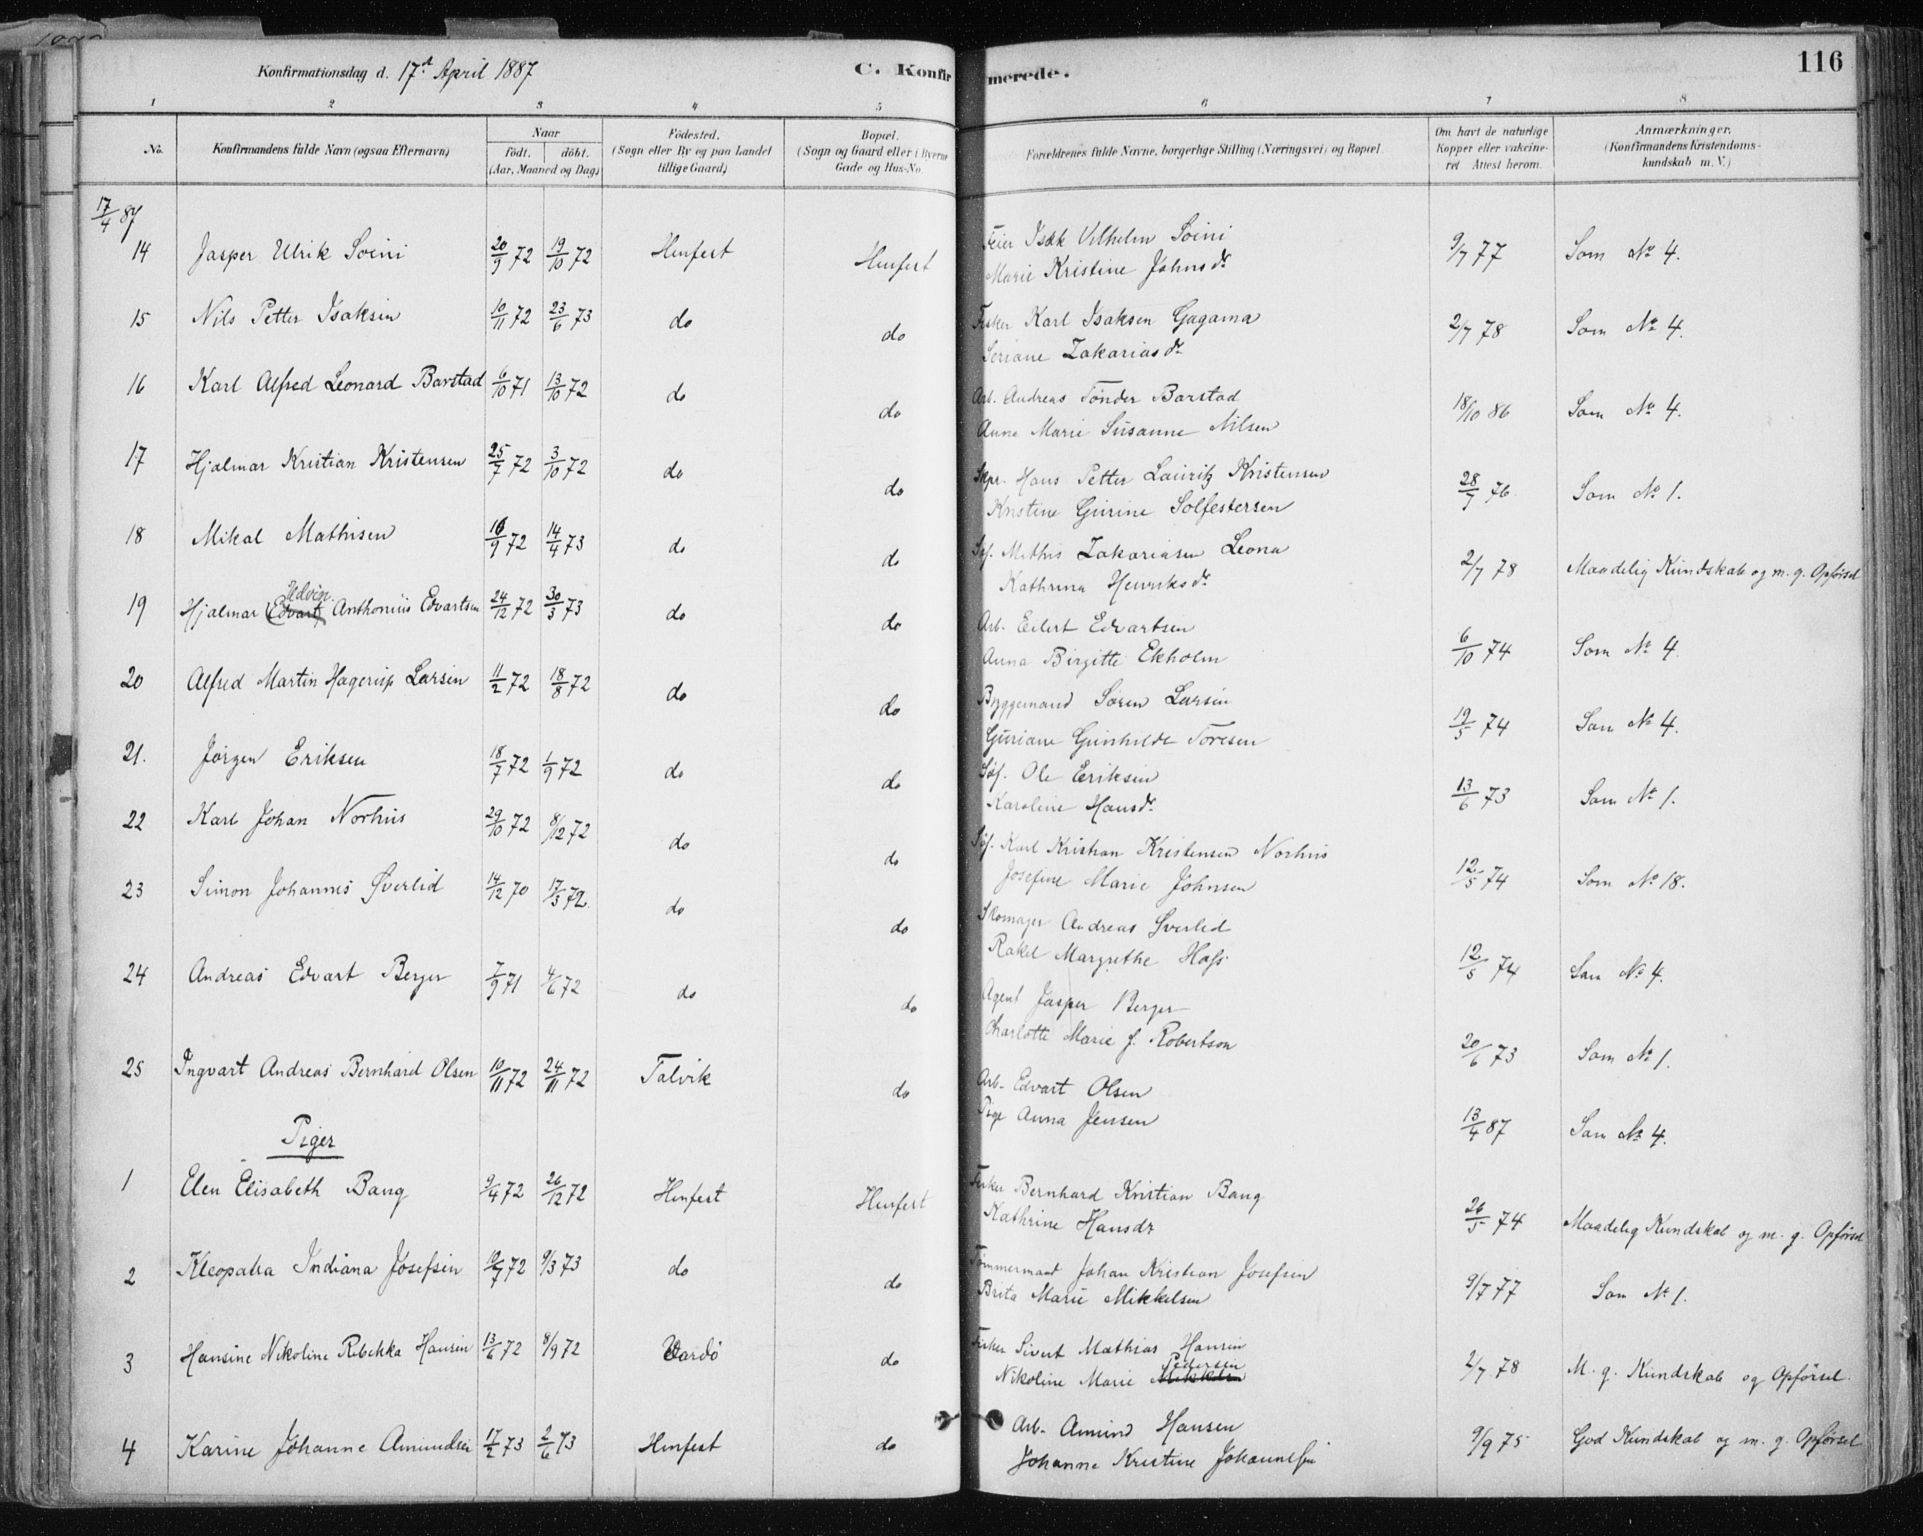 Konfirmationsdag d. 17d April 1887 C. Konfirmerede. 116
1 2 3 4 5 6 7 8
No. Konfirmandens fulde Navn (ogsaa Efternavn) Naar födt. döbt. (Aar, Maaned og Dag) Födested. (Sogn eller By og paa Landet tillige Gaard) Bopæl. (Sogn og Gaard eller i Byerne Gade og Hus-No. Forældrenes fulde Navne, borgerlige Stilling (Næringsvei) og Bopæl. Om havt de naturlige Kopper eller vakcineret Attest herom. Anmærkninger. (Konfirmandens Kristendomskundskab m. V.)
17/4 87
14 Jasper Ulrik Soini 20/9 72 19/10 72 Hmfest Hmfest Feier Isak Vilhelm Soini 9/7 77 Som No 4.
Marie Kristine Johnsdr
15 Nils Petter Isaksen 10/11 72 23/6 73 do do Fisker Karl Isaksen Gagama 2/7 78 Som No 4.
Seriane Zakariasdr
16 Karl Alfred Leonard Barstad 6/10 71 13/10 72 do do Arb. Andreas Tönder Barstad 18/10 86 Som No 4.
Anne Marie Susanne Nilsen
17 Hjalmar Kristian Kristensen 25/7 72 3/10 72 do do Skpr. Hans Petter Lauritz Kristensen 28/7 76 Som No 1.
Kristine Gurine Solfestersen
18 Mikal Mathisen 16/9 72 14/4 73 do do Søf. Mathis Zakariasen Leona 2/7 78 Maadelig Kundskab og m. g. Opførsel
Kathrina Henriksdr
19 Hjalmar Edvart Edvin Anthonius Edvartsen 24/12 72 30/3 73 do do Arb. Eilert Edvartsen 6/10 74 Som No 4.
Anna Birgitte Ekholm
20 Alfred Martin Hagerup Larsen 11/2 72 18/8 72 do do Byggemand Sören Larsen 19/5 74 Som No 4.
Guriane Gunhilde Toresen
21. Jörgen Eriksen 18/7 72 1/9 72 do do Søf. Ole Eriksen 13/6 73 Som No 1.
Karoline Hansdr
22 Karl Johan Norhus 29/10 72 8/12 72 do do Søf. Karl Kristian Kristensen Norhus 12/5 74 Som No 18.
Josefine Marie Johnsen
23 Simon Johannes Øverlid 14/12 70 17/3 72. do do Skomager Andreas Øverlid 12/5 74 Som No 4.
Rakel Margrethe Hass
24 Andreas Edvart Berger 7/9 71 4/6 72 do do Agent Jasper Berger 20/6 73 Som No 1.
Charlotte Marie f. Robertson
25 Ingvart Andreas Bernhard Olsen 10/11 72 24/11 72 Talvik do Arb. Edvart Olsen 13/4 87 Som No 4.
Pige Anna Jensen
Piger
1 Elen Elisabeth Bang 9/4 72 26/12 72 Hmfest Hmfest Fisker Bernhard Kristian Bang 26/5 74 Maadelig Kundskab og m. g. Opførsel
Kathrine Hansdr
2 Kleopatra Indiana Josefsen 19/7 72 9/3 73 do do Tömmermand Johan Kristian Josefsen 9/7 77 Som No 1.
Brita Marie Mikkelsen
3 Hansine Nikoline Rebekka Hansen 13/6 72 8/9 72 Vardö do Fisker Sivert Mathias Hansen 2/7 78 M. g. Kundskab og Opførsel.
Nikoline Marie Mikkelsen Pedersen
4 Karine Johanne Amundsen 17/2 73 2/6 73 Hmfest do Arb. Amund Hansen 9/9 75 God Kundskab og m. g. Opførsel
Johanne Kristine Johannessen